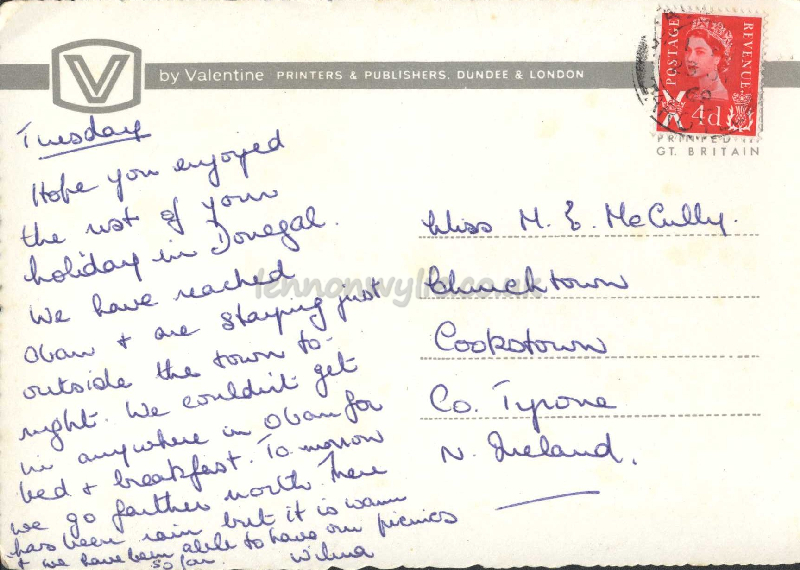 V
by Valentine PRINTERS & PUBLISHERS, DUNDEE & LONDON
POSTAGE
REVENUE
4d
PRINTED
GT. BRITAIN
Tuesday
Hope you enjoyed
the rest of your
holiday in Donegal.
We have reached
Oban + are staying just
outside the town to-
night. We couldn't get
in anywhere in Oban for
bed + breakfast. To morrow
we go farther north. There
has been rain but it is warm
+ we have been able to have our picnics
so far. Wilma
Miss M. E. McCully.
Churchtown
Cookstown
Co. Tyrone
N. Ireland.
lennonwylie.co.uk